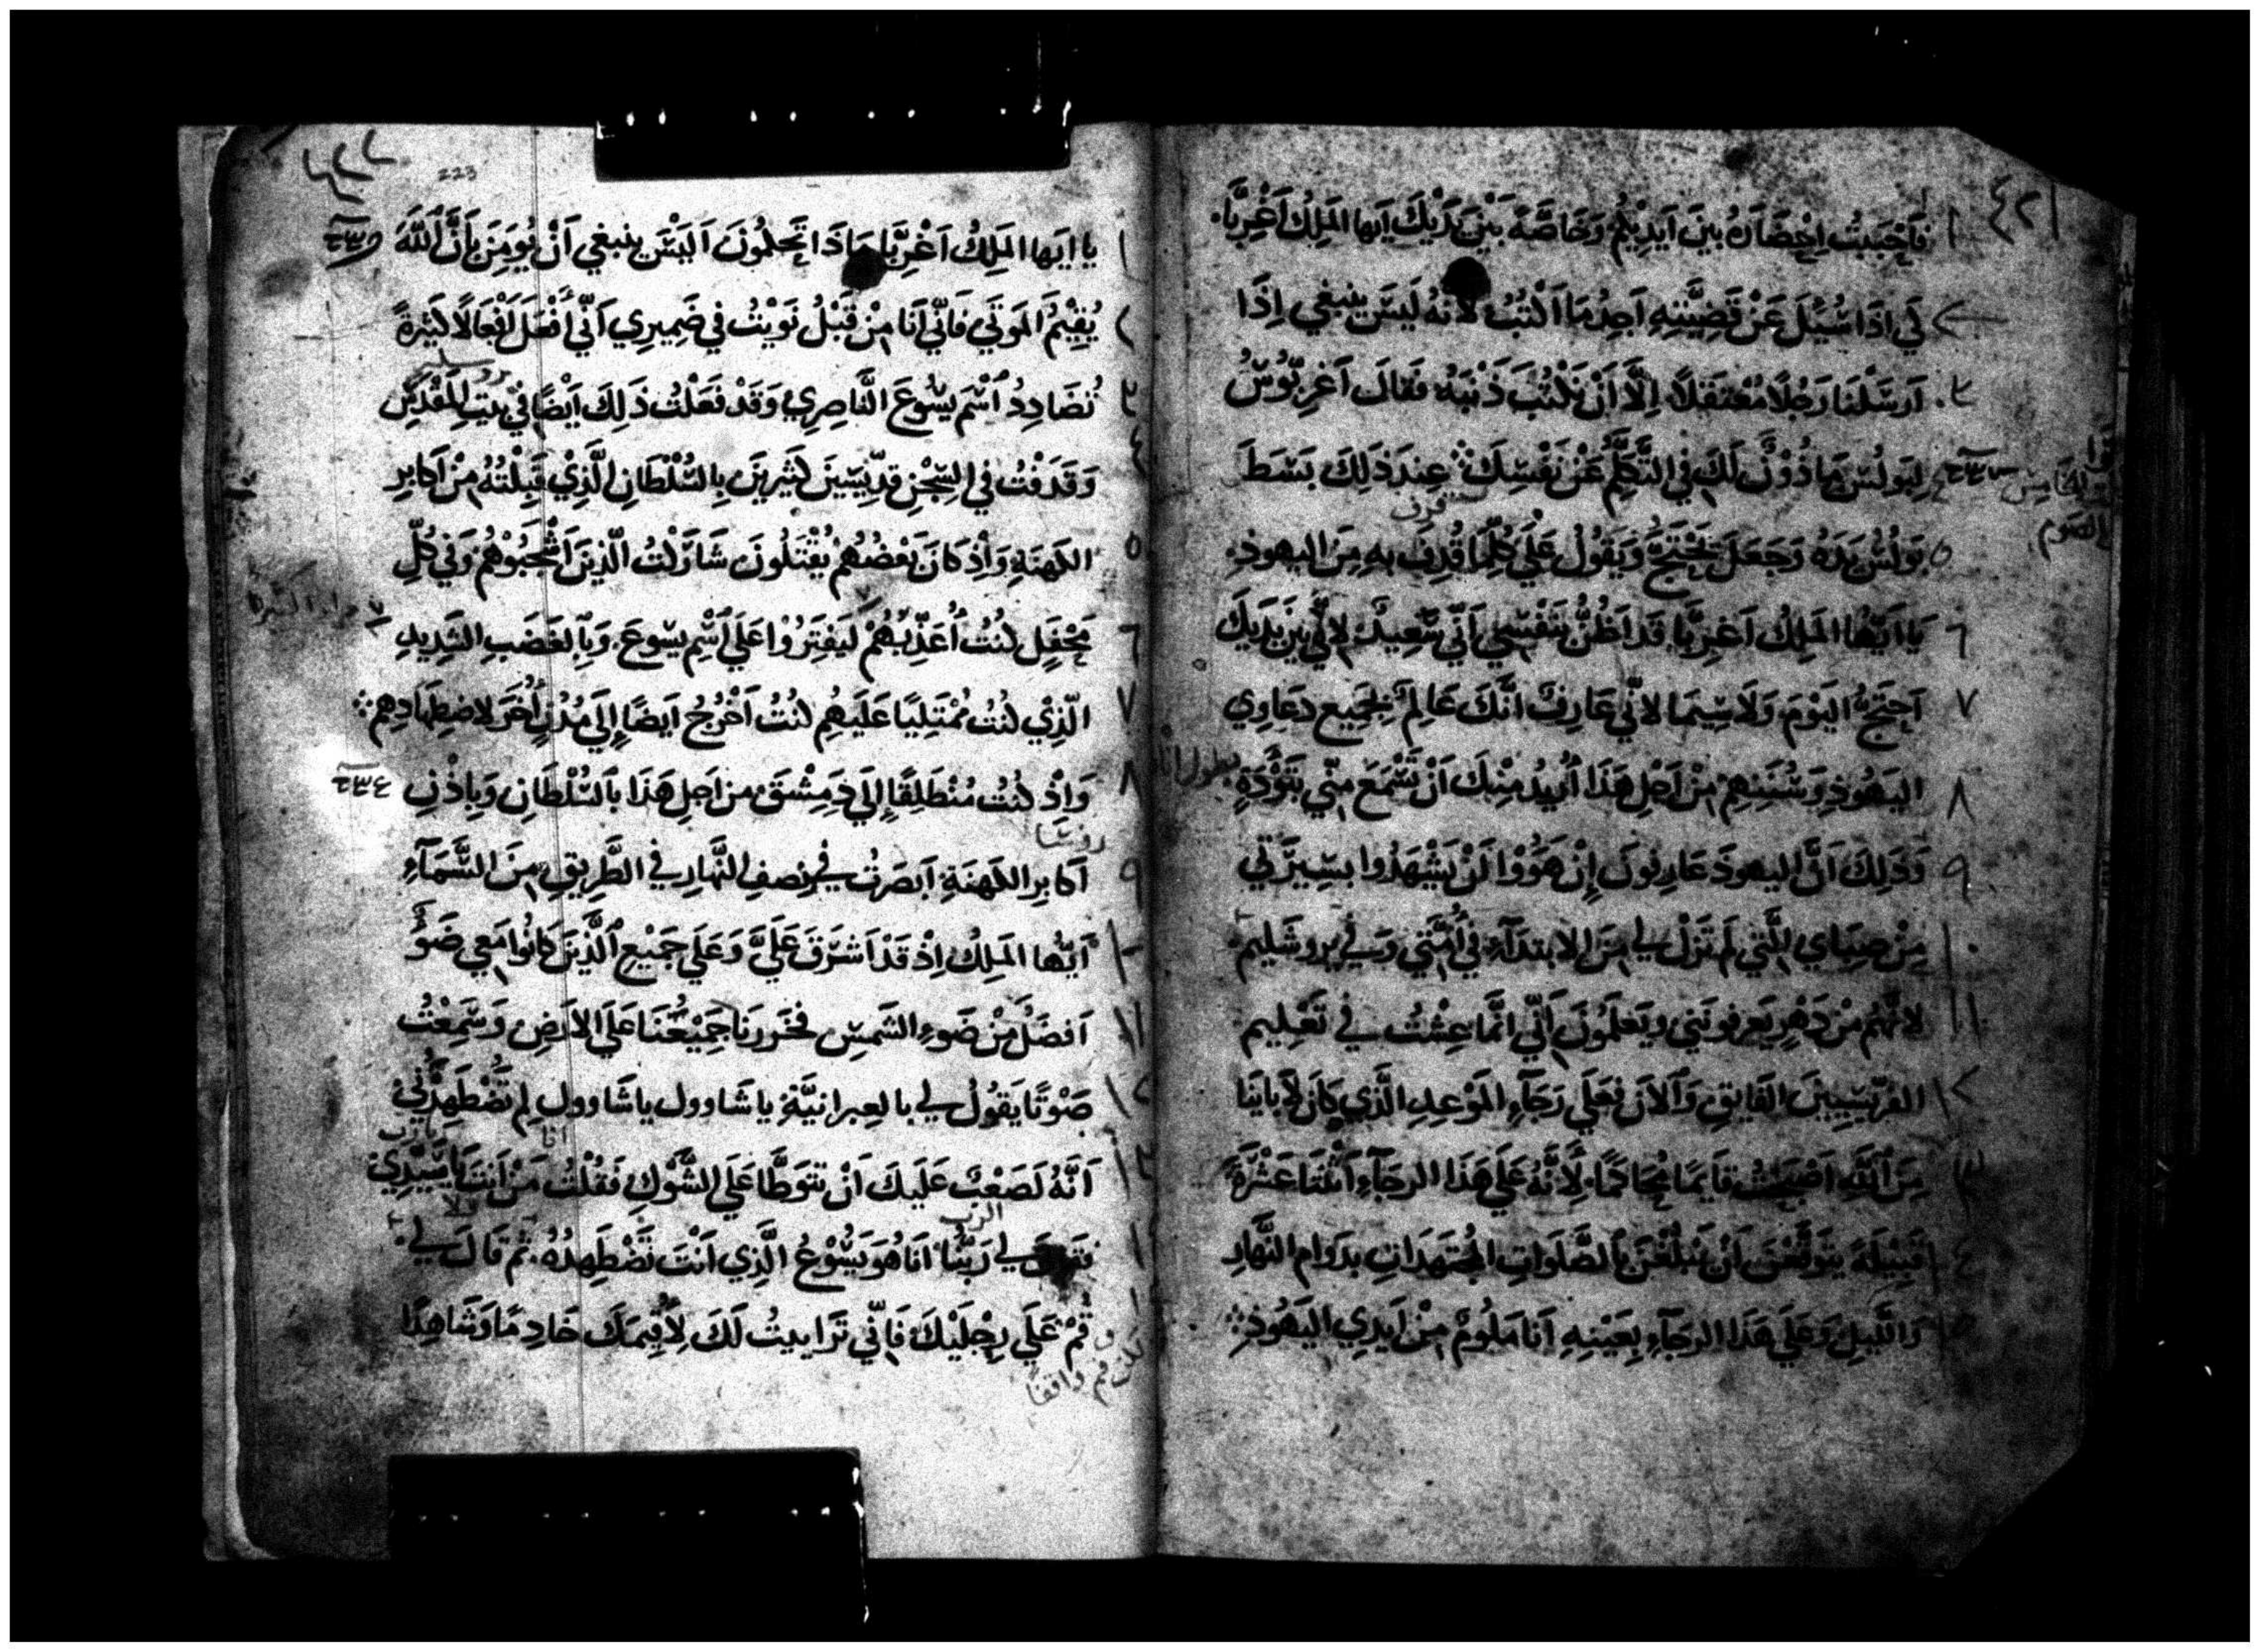 فَاَحْبَبتُ اِحْضَارَهُ بينَ اَيدِيْكُمْ وَخَاصَّةً بَيْنَ يَدَيْكَ اَيها المَلِكُ اَغْرِبَّا.
لَي اذَا سُيُلَ عَنْ قَضِيَّتِهِ اَجِدُ مَا اَكْتُبُ لانهُ لَيسَ ينبغي اِذَا
اَرسَلْنَا رَجُلًا مُعْتَقَلًا. اِلَّا اَنْ نَكْتُبَ ذَنْبَهُ فَقالَ اَغرِبُّوسُ
لِبَولُسَ مَاذُوْنٌ لَكَ فِي التَّكَلُّمِ عَنْ نَفْسِكَ عِندَ ذَلِكَ بَسَطَ
بَوَلُسُ يَدَهُ وَجَعَلَ يَحْتَجُّ وَيَقُولُ عَلَي كُلِّمَا قُذِفَ بهِ مِنَ اليهوذِ.
يَا اَيّهُا المَلِكُ اَغرِبَّا قَد اَظُنُّ بنَفْسِي اَنّي سَعِيدٌ لِانّي بَينَ يَدَيكَ
اَحتَجُّ اليَوْمَ وَلَاسِيَمَا لانّي عَارِفٌ انَّكَ عَالِمٌ بجَميعِ دعَاوِي
اليَهُوذِ وَسُنَنِهِمْ مِنْ اَجْلِ هَذَا اُرِيدُ مِنْكَ اَنْ تَسْمَعَ مِنّي بتَوَّدَةٍ
وَذَلِكَ اَنَّ اليهوذَ عَارِفُونَ اِنْ هَوَوْا اَنْ يَشْهَدُوا بسِيْرَتي
مِنْ صِبَاي الَّتي لَمْ تَزَلْ لي مِنَ الابتدَآءِ فِي اُمَّتي وَفي يروشَليم
لانَّهُمْ مِنْ دَهْرٍ يَعرِفونَني ويَعلَمُونَ اَنّي انَّمَا عِشْتُ في تَعْلِيم
الفرِّيسِيينَ الفَايقِ وَالاَنَ فعَلَي رَجَآءِ المَوْعِدِ الَّذِي كَانَ لآبَاينَا
مِنَ اَللَّهِ اَصْبَحتُ قايمًا مُحَاكمًا. لِاَنَّهُ عَلَي هَذَا الرجَآءِ اثْنَتَا عَشْرَةَ
قَبِيلَةً يَتَوقَّعْنَ اَنْ يَبْلُغْنَ بَالصَّلَوَاتِ المُجْتَهَدَاتِ بدَوَامِ النَّهَارِ
وَاللَّيلِ وَعَلَي هَذَا الرجَآءِ بِعَيْنِهِ اَنا مَلُومٌ مِنْ اَيدِي اليَهُوذِ
223
يا ايَها المَلِكُ اَغْرِبَّا مَاذَا تَحكُمُونَ اَليْسَ ينبغي اَنْ يُومَنَ بِاَنَّ اَللَّهَ
يُقِيْمُ المَوتَي فَانّي اَنَا مِنْ قَبْلُ نَوَيْتُ في ضَمِيرِي اَنّي اَفْعَلَ اَفْعَالًا كَثِرةً
تُضَادِدُ اَسْمَ يسُوعَ النَّاصِرِي وَقَدْ فعَلْتُ ذَلِكَ اَيضًا في بيتِ المَقْدِسِ
وَقَدَفْتُ فِي السِّجْنِ قدِّيسِينَ كثِيرِينَ بِالسُّلْطَانِ الَّذِيْ قَبِلْتُهُ مِنْ اَكابرِ
الكَهنَةِ وَاِذ كَانَ بَعْضُهُمْ يُقْتَلُونَ شَارَكتُ الّذِينَ اَشْجَبُوهُمْ وَفي كُلِّ
مَحْفَلٍ كُنتُ اُعَذِّبُهُمْ لَيَفْتَرُوْا عَلَي اَسْمِ يسُوعَ. وَبِاَلغَضَبِ الشَدِيدِ
الّذِيْ كُنتُ مُمْتَلِيًا عَلَيهِمِ كُنتُ اَخْرُجُ ايَضًا اِلَي مُدُنٍ اُخَرَ لاضطِهَادِهِم
وَاِذْ كُنتُ مُنْطَلِقًا اِلَي دِمِشْقَ مِن اجَلِ هَذَا بَالسُّلْطَانِ وَبِاِذْنِ
روسَا
اَكَابِرِ الكَهنَةِ اَبصَرتُ في نِصفِ النَّهَارِ في الطَّرِيقِ مِنَ السَّمَآءِ
اَيّهُا المَلِكُ اِذْ قَدْ اَشرَقَ عَلَيَّ وَعَلَي جَمِيْعِ الَّذِينَ كانُوا مَعي ضَوْءٌ
اَفضَلُ مِنْ ضَوءِ الشَمسِ فخَرَرنَا جَمِيْعُنَا عَلَى الارَضِ وَسَمِعْتُ
صَوْتًا يَقُولُ لي بالعِبرانيَّةِ يا شَاوول يا شَاوول لِم تَضْطَهِدُني
اَنَّهُ لَصَعْبٌ عَلَيكَ اَنْ تتوَطَّا عَلَي الشَّوكِ فَقُلْتُ مَنْ اَنتَ يَاسَيّدِي
الرب
لي رَبُّنا اَنَا هُوَ يَسُوعُ الَّذِي اَنْتَ تَضْطَهِدُهُ. ثُم قالَ لي.
قُمْ عَلَي رِجْلَيْكَ فَانّي تَرَاييتُ لَكَ لِاُقِيمَكَ خَادِمًا وَشَاهِدًا
لكن قم واقفًا